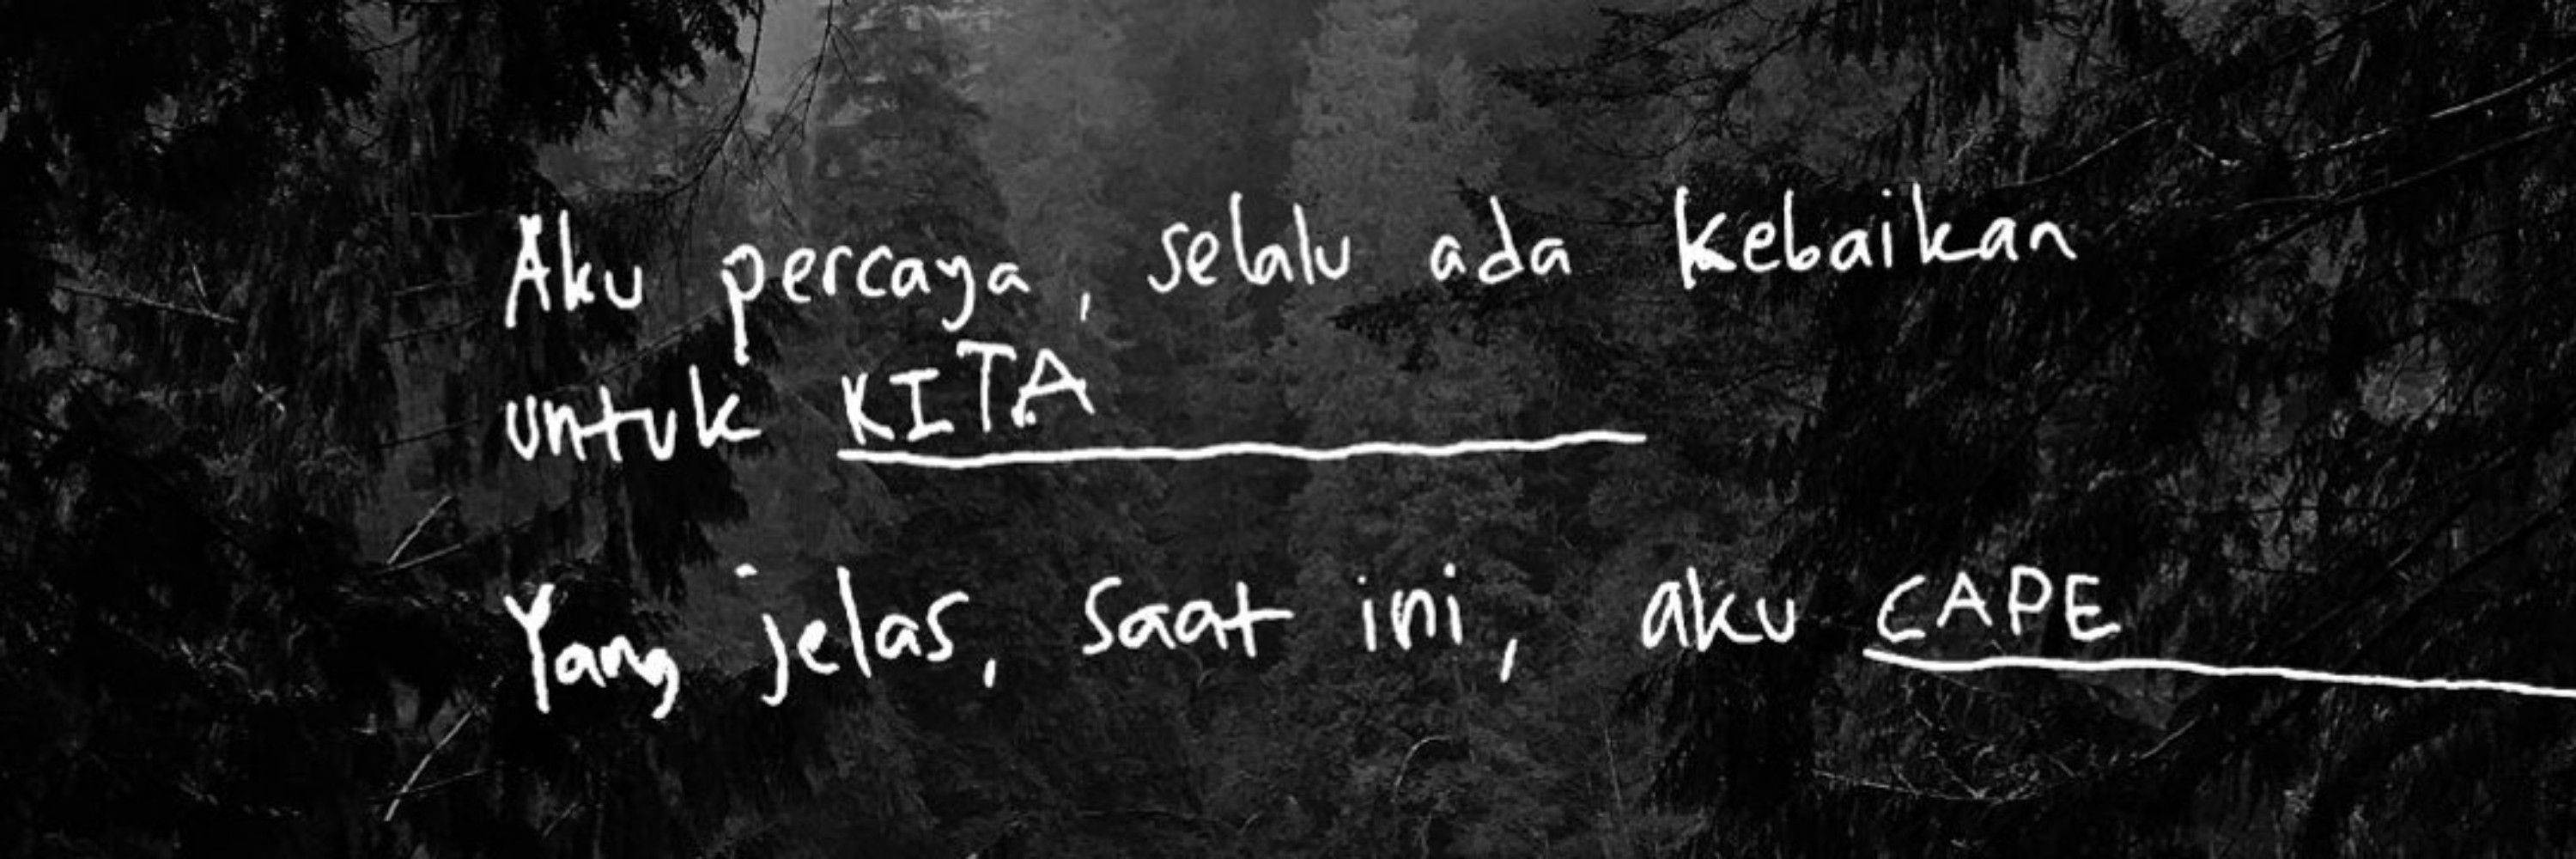 Aku percaya, selalu ada kebaikan
untuk KITA
Yang jelas, saat ini, aku CAPE